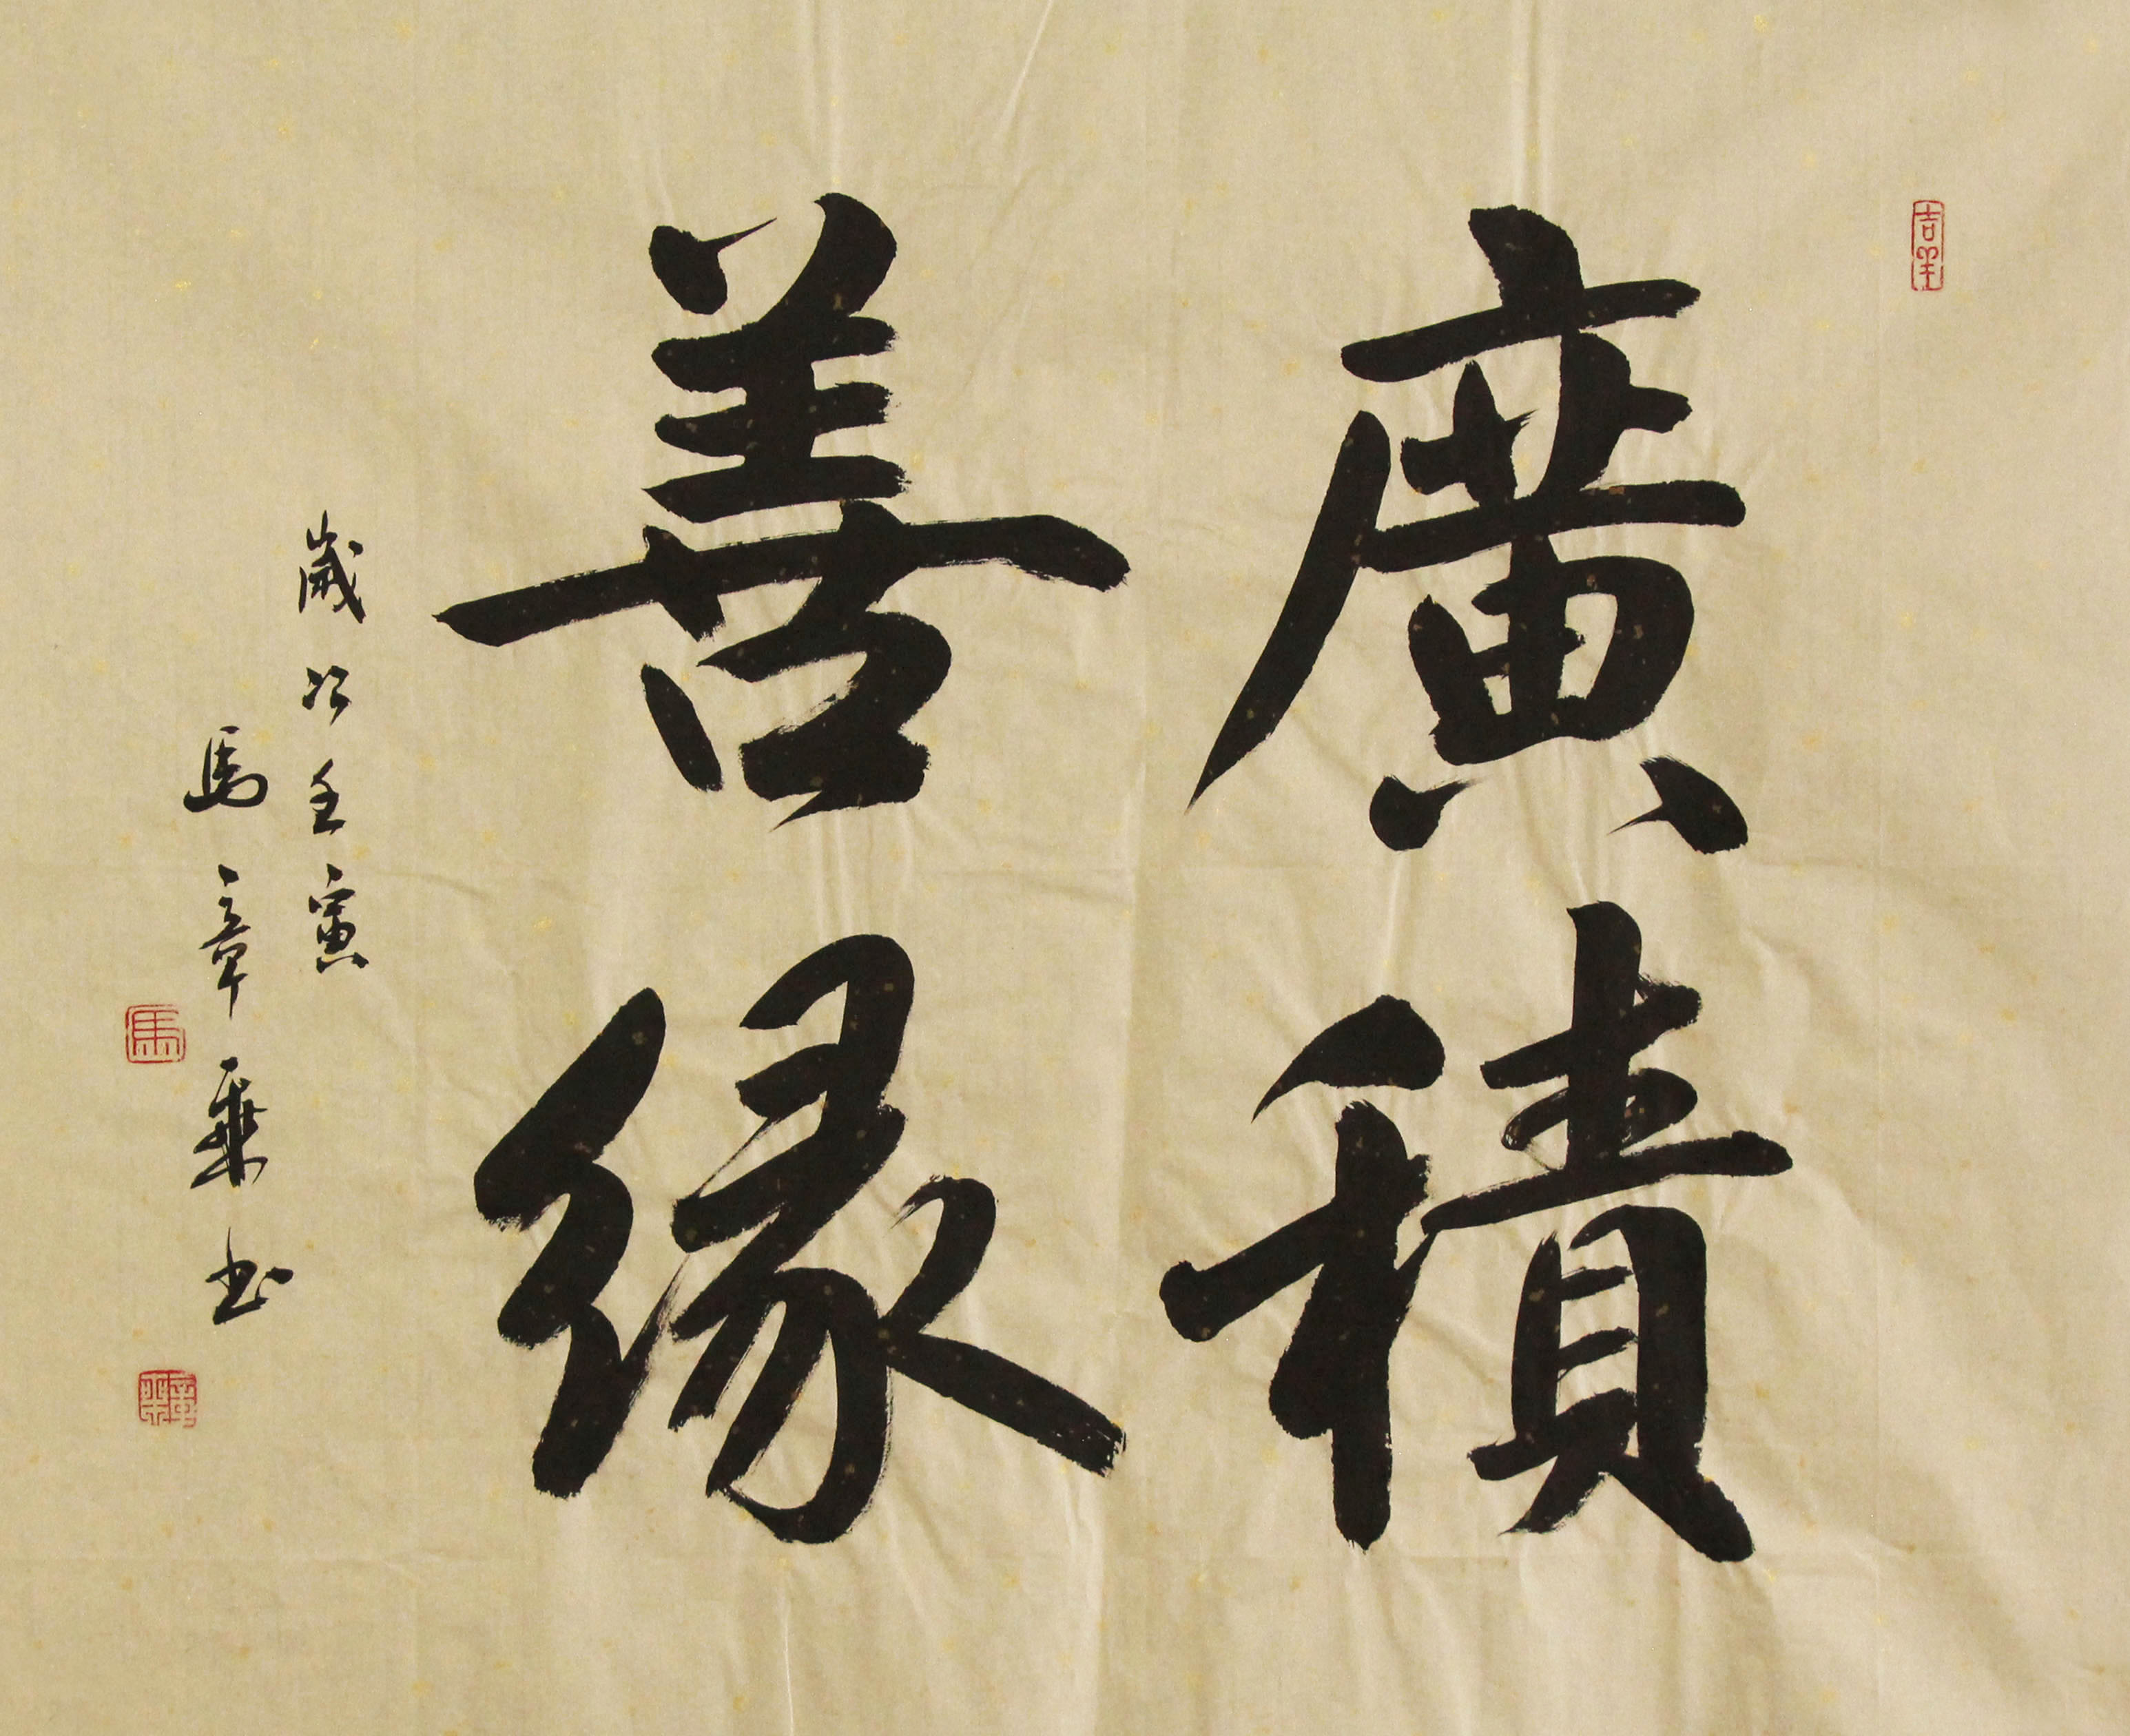 廣積
善緣
歲次壬寅
馬章乘書
吉羊
馬